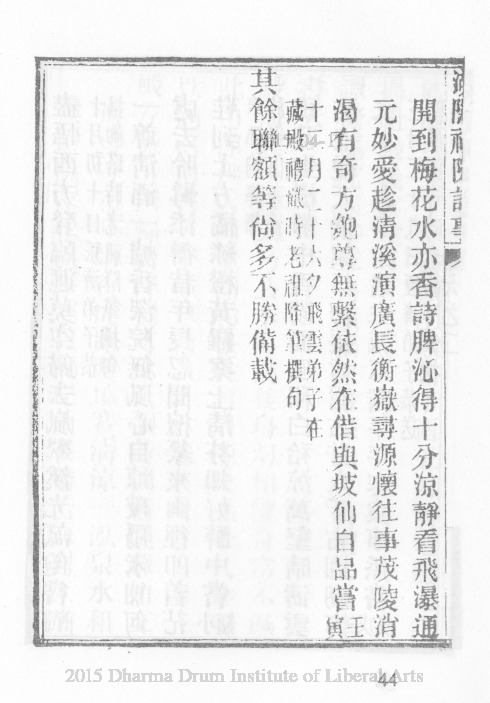 開到梅花水亦香詩脾沁得十分涼靜看飛瀑通
元妙愛趁淸溪演廣長衡嶽尋源懷往事茂陵消
渴有奇方匏尊無繫依然在借與坡仙自品嘗
壬寅
十二月二十六夕飛雲弟子在
藏殿禮懺時老祖降筆撰句
其餘聯額等尙多不勝備載
2015 Dharma Drum Institute of Liberal Arts
44